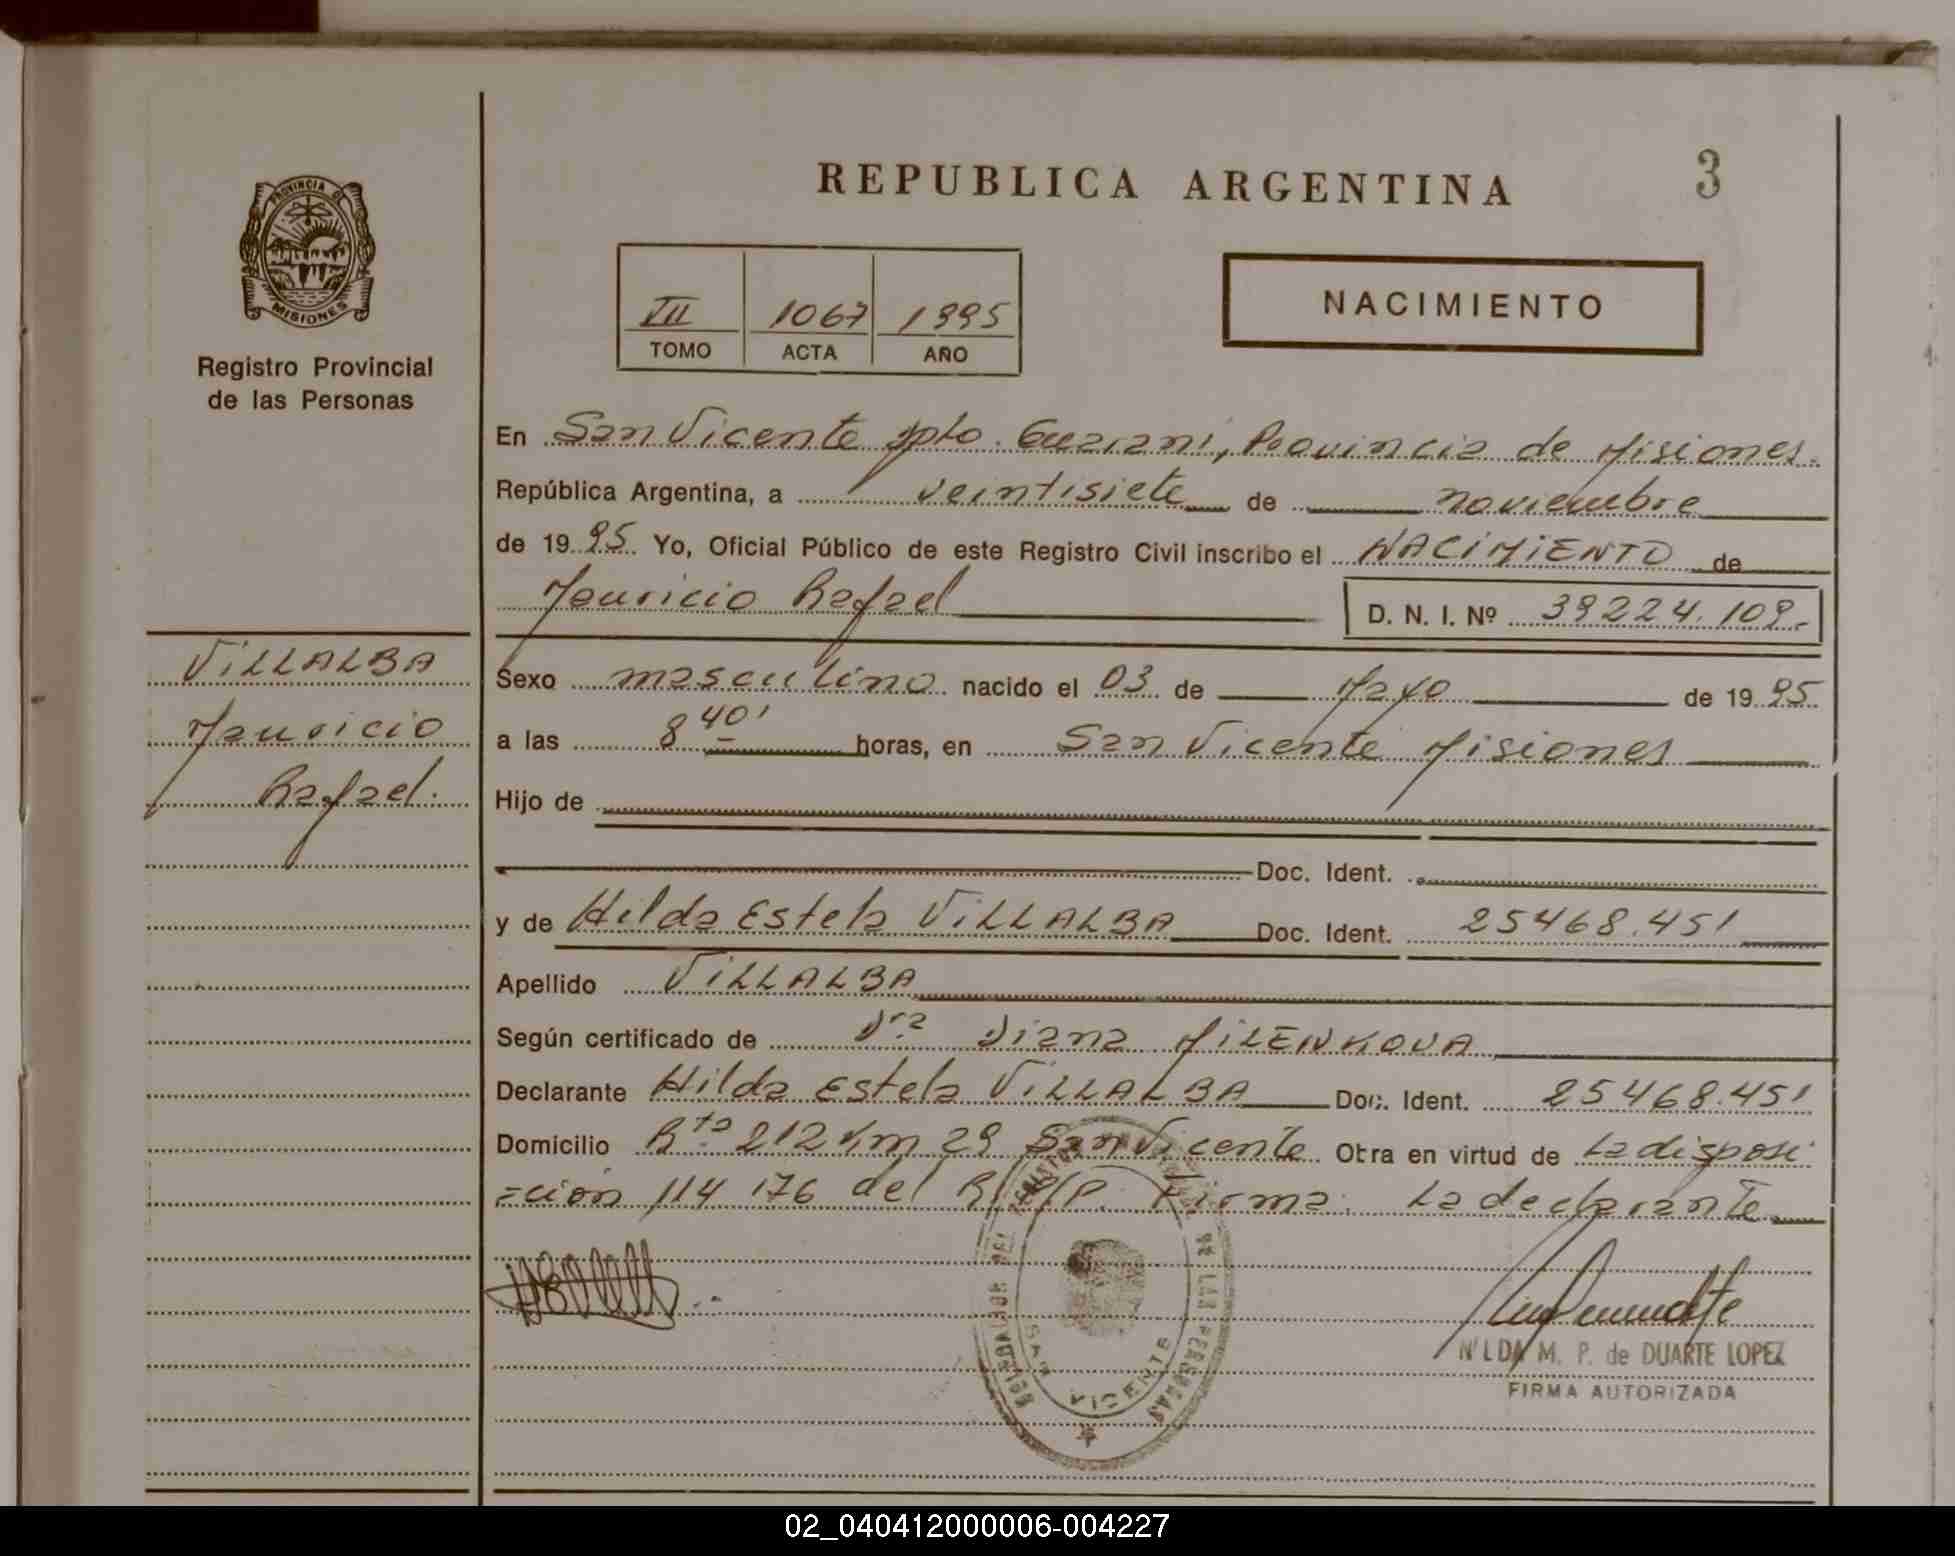 REPUBLICA ARGENTINA
3
PROVINCIA DE MISIONES
Registro Provincial
de las Personas
VII 1067 1995
TOMO ACTA AÑO
NACIMIENTO
En San Vicente Dpto. Guarani, Provincia de Misiones.
República Argentina, a veintisiete de noviembre
de 1995. Yo, Oficial Público de este Registro Civil inscribo el NACIMIENTO de
Mauricio Rafael D. N. I. Nº 39224.109.-
VILLALBA
Mauricio
Rafael.
Sexo masculino nacido el 03 de Mayo de 1995
a las 8 40' horas, en San Vicente Misiones
Hijo de
Doc. Ident.
y de Hilda Estela VILLALBA Doc. Ident. 25468.451
Apellido VILLALBA
Según certificado de Dra Diana MILENKOVA
Declarante Hilda Estela VILLALBA Doc. Ident. 25468.451
Domicilio Rta 212 Km 29 San Vicente Otra en virtud de La disposi
=ción 114 176 del Firma: La declarante
DE LAS PERSONAS
SAN VICENTE
NILDA M. P. de DUARTE LOPEZ
FIRMA AUTORIZADA
02_040412000006-004227